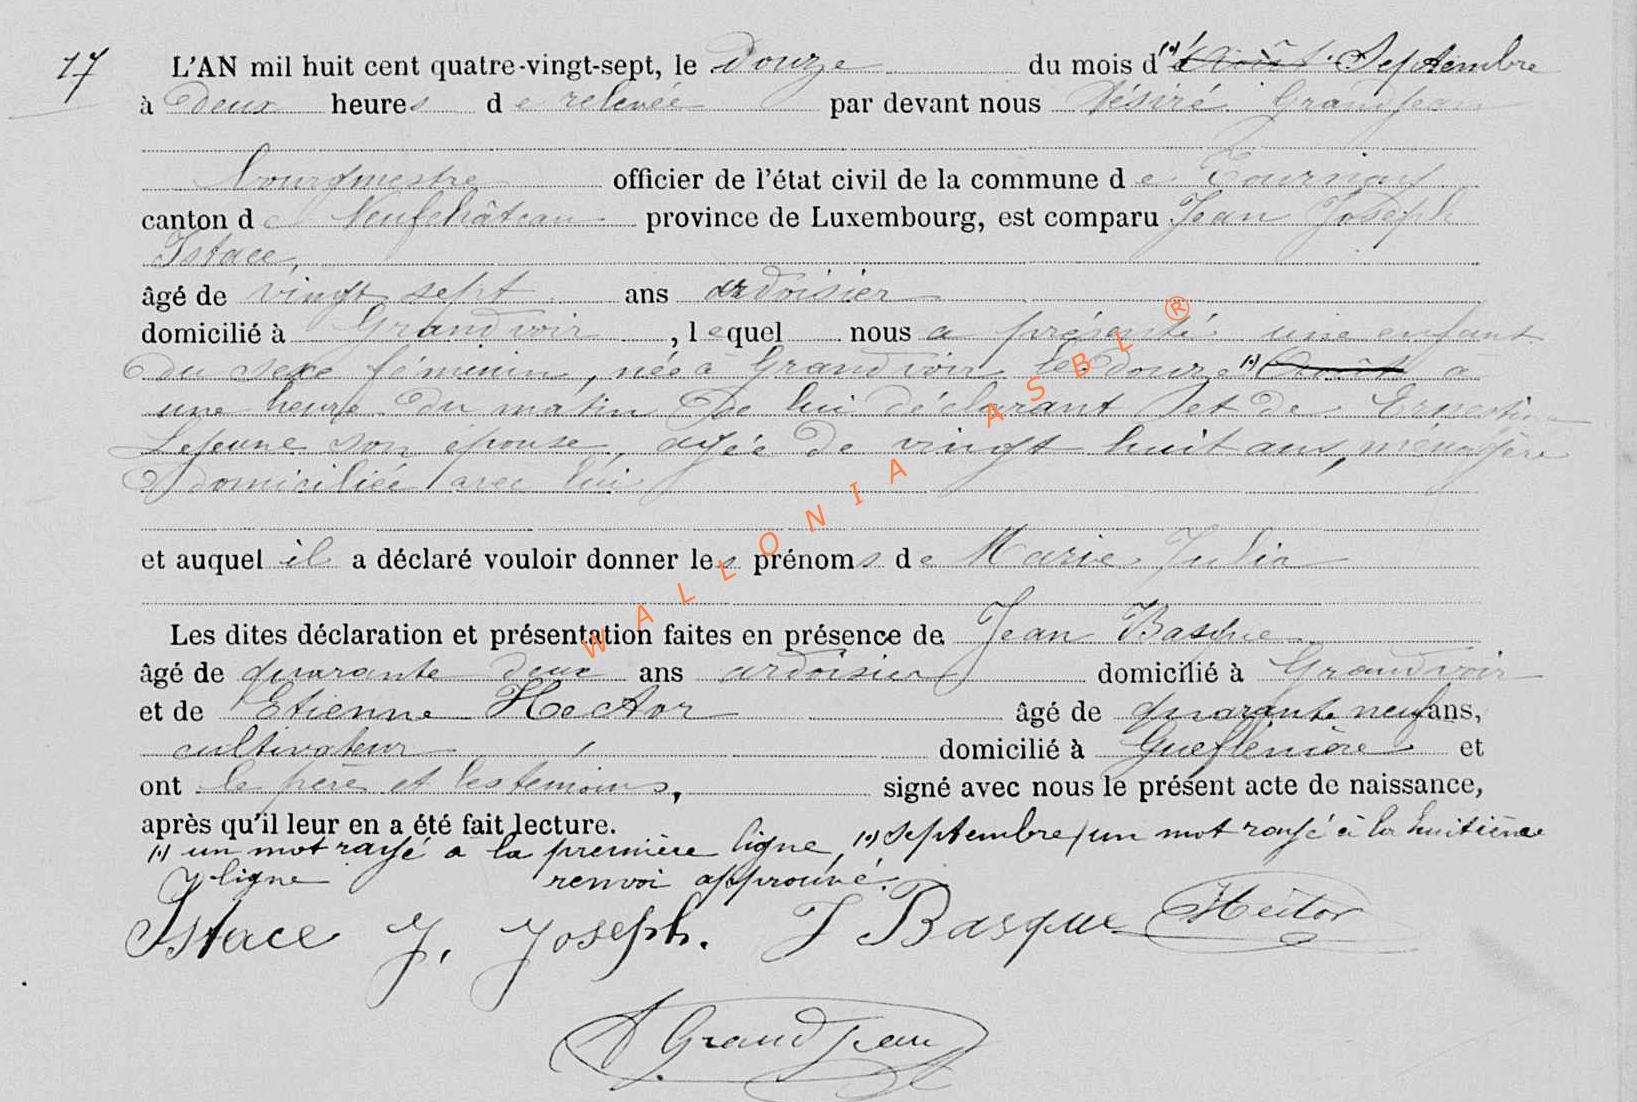 17
L'AN mil huit cent quatre-vingt-sept, le Douze du mois d' (1) Août Septembre
à Deux heures de relevée par devant nous Désiré Grandjean
bourgmestre officier de l'état civil de la commune de Tournay
canton de Neufchâteau province de Luxembourg, est comparu Jean Joseph
Istace,
âgé de vingt sept ans ardoisier
domicilié à Grandvoir, lequel nous a présenté une enfant
du sexe féminin, née à Grandvoir le douze (1) Août à
une heure du matin de lui déclarant et de Ernestine
Lejeune son épouse, agée de vingt huit ans, ménagère
domiciliée avec lui
et auquel il a déclaré vouloir donner les prénoms de Marie Julia
Les dites déclaration et présentation faites en présence de Jean Basque
âgé de quarante deux ans ardoisier domicilié à Grandvoir
et de Etienne Hector âgé de quarante neuf ans,
cultivateur, domicilié à et
ont le père et les témoins, signé avec nous le présent acte de naissance,
après qu'il leur en a été fait lecture.
(1) un mot rayé à la première ligne, (1) septembre, un mot rayé à la huitième
ligne renvoi approuvé.
Istace J, Joseph. J Basque Hector
D Grandjean
WALLONIA ASBL ®